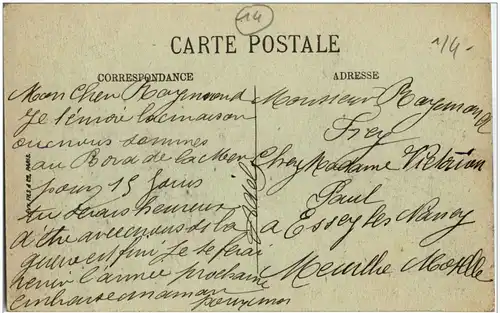 14
14.
CARTE POSTALE
CORRESPONDANCE
ADRESSE
Mon Cher Raymond
Je t'envoie la maison
ou nous sommes
au Bord de la Mer
pour 15 Jours
tu serais heureux
d'être avec nous si la
guerre est fini Je te ferai
venir l'année prochaine
embrasse maman
pour moi
Adolf
Monsieur Raymond
Frey
Chez Madame Vietrion
Paul
a Essey les Nancy
Meurthe Moselle